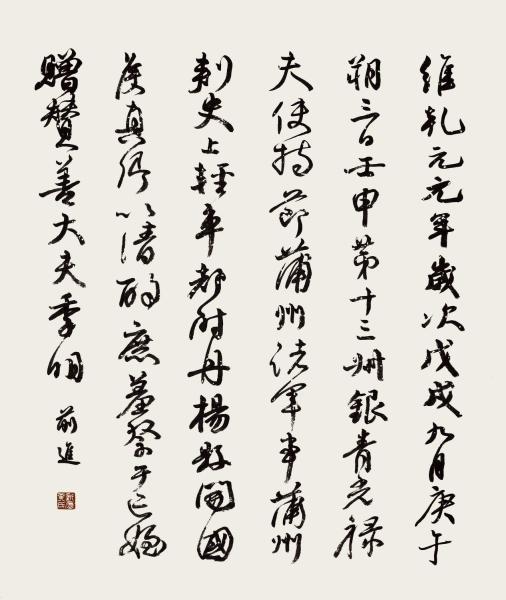 維乾元元年歲次戊戌九月庚午
朔三日壬申第十三叔銀青光祿
夫使持節蒲州諸軍事蒲州
刺史上輕車都尉丹楊縣開國
侯真卿以清酌庶羞祭于亡姪
贈贊善大夫季明
前進